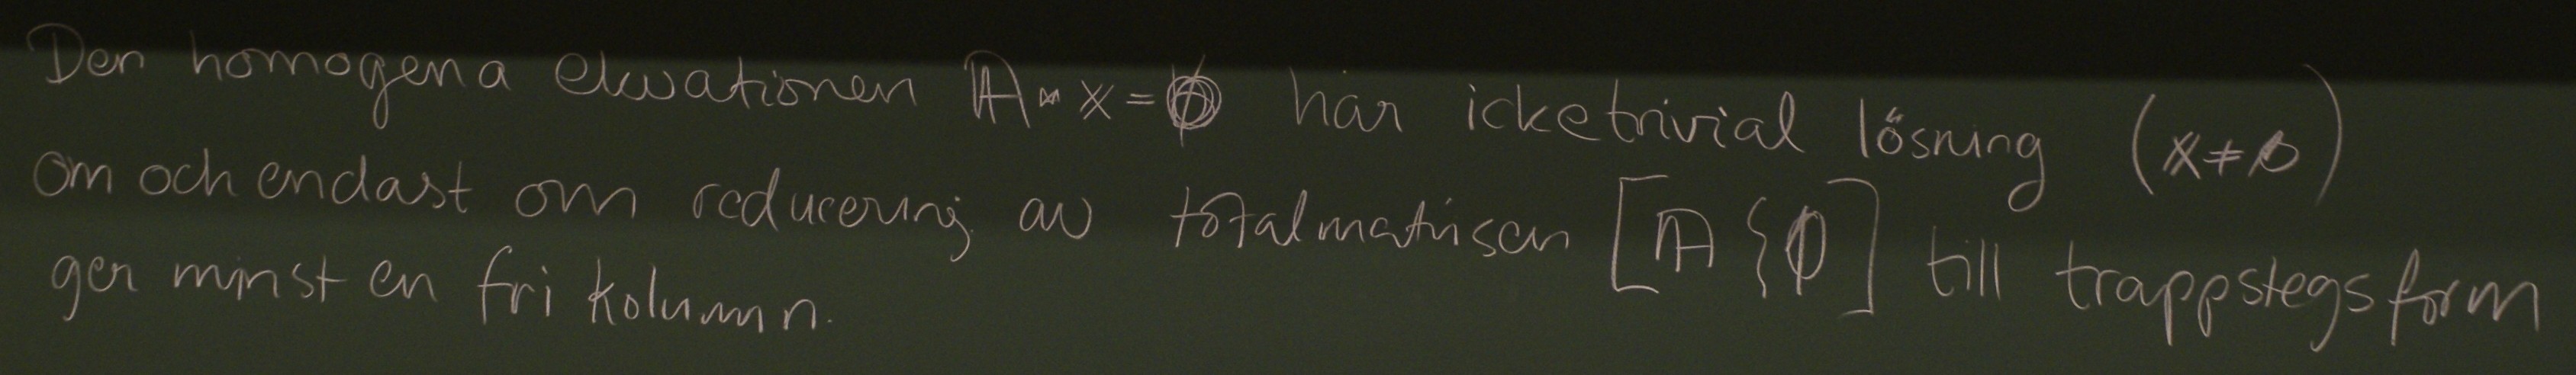 Den homogena ekvationen A · x = 0 har icketrivial lösning (x ≠ 0)
om och endast om reducering av totalmatrisen [A { 0] till trappstegsform
ger minst en fri kolumn.